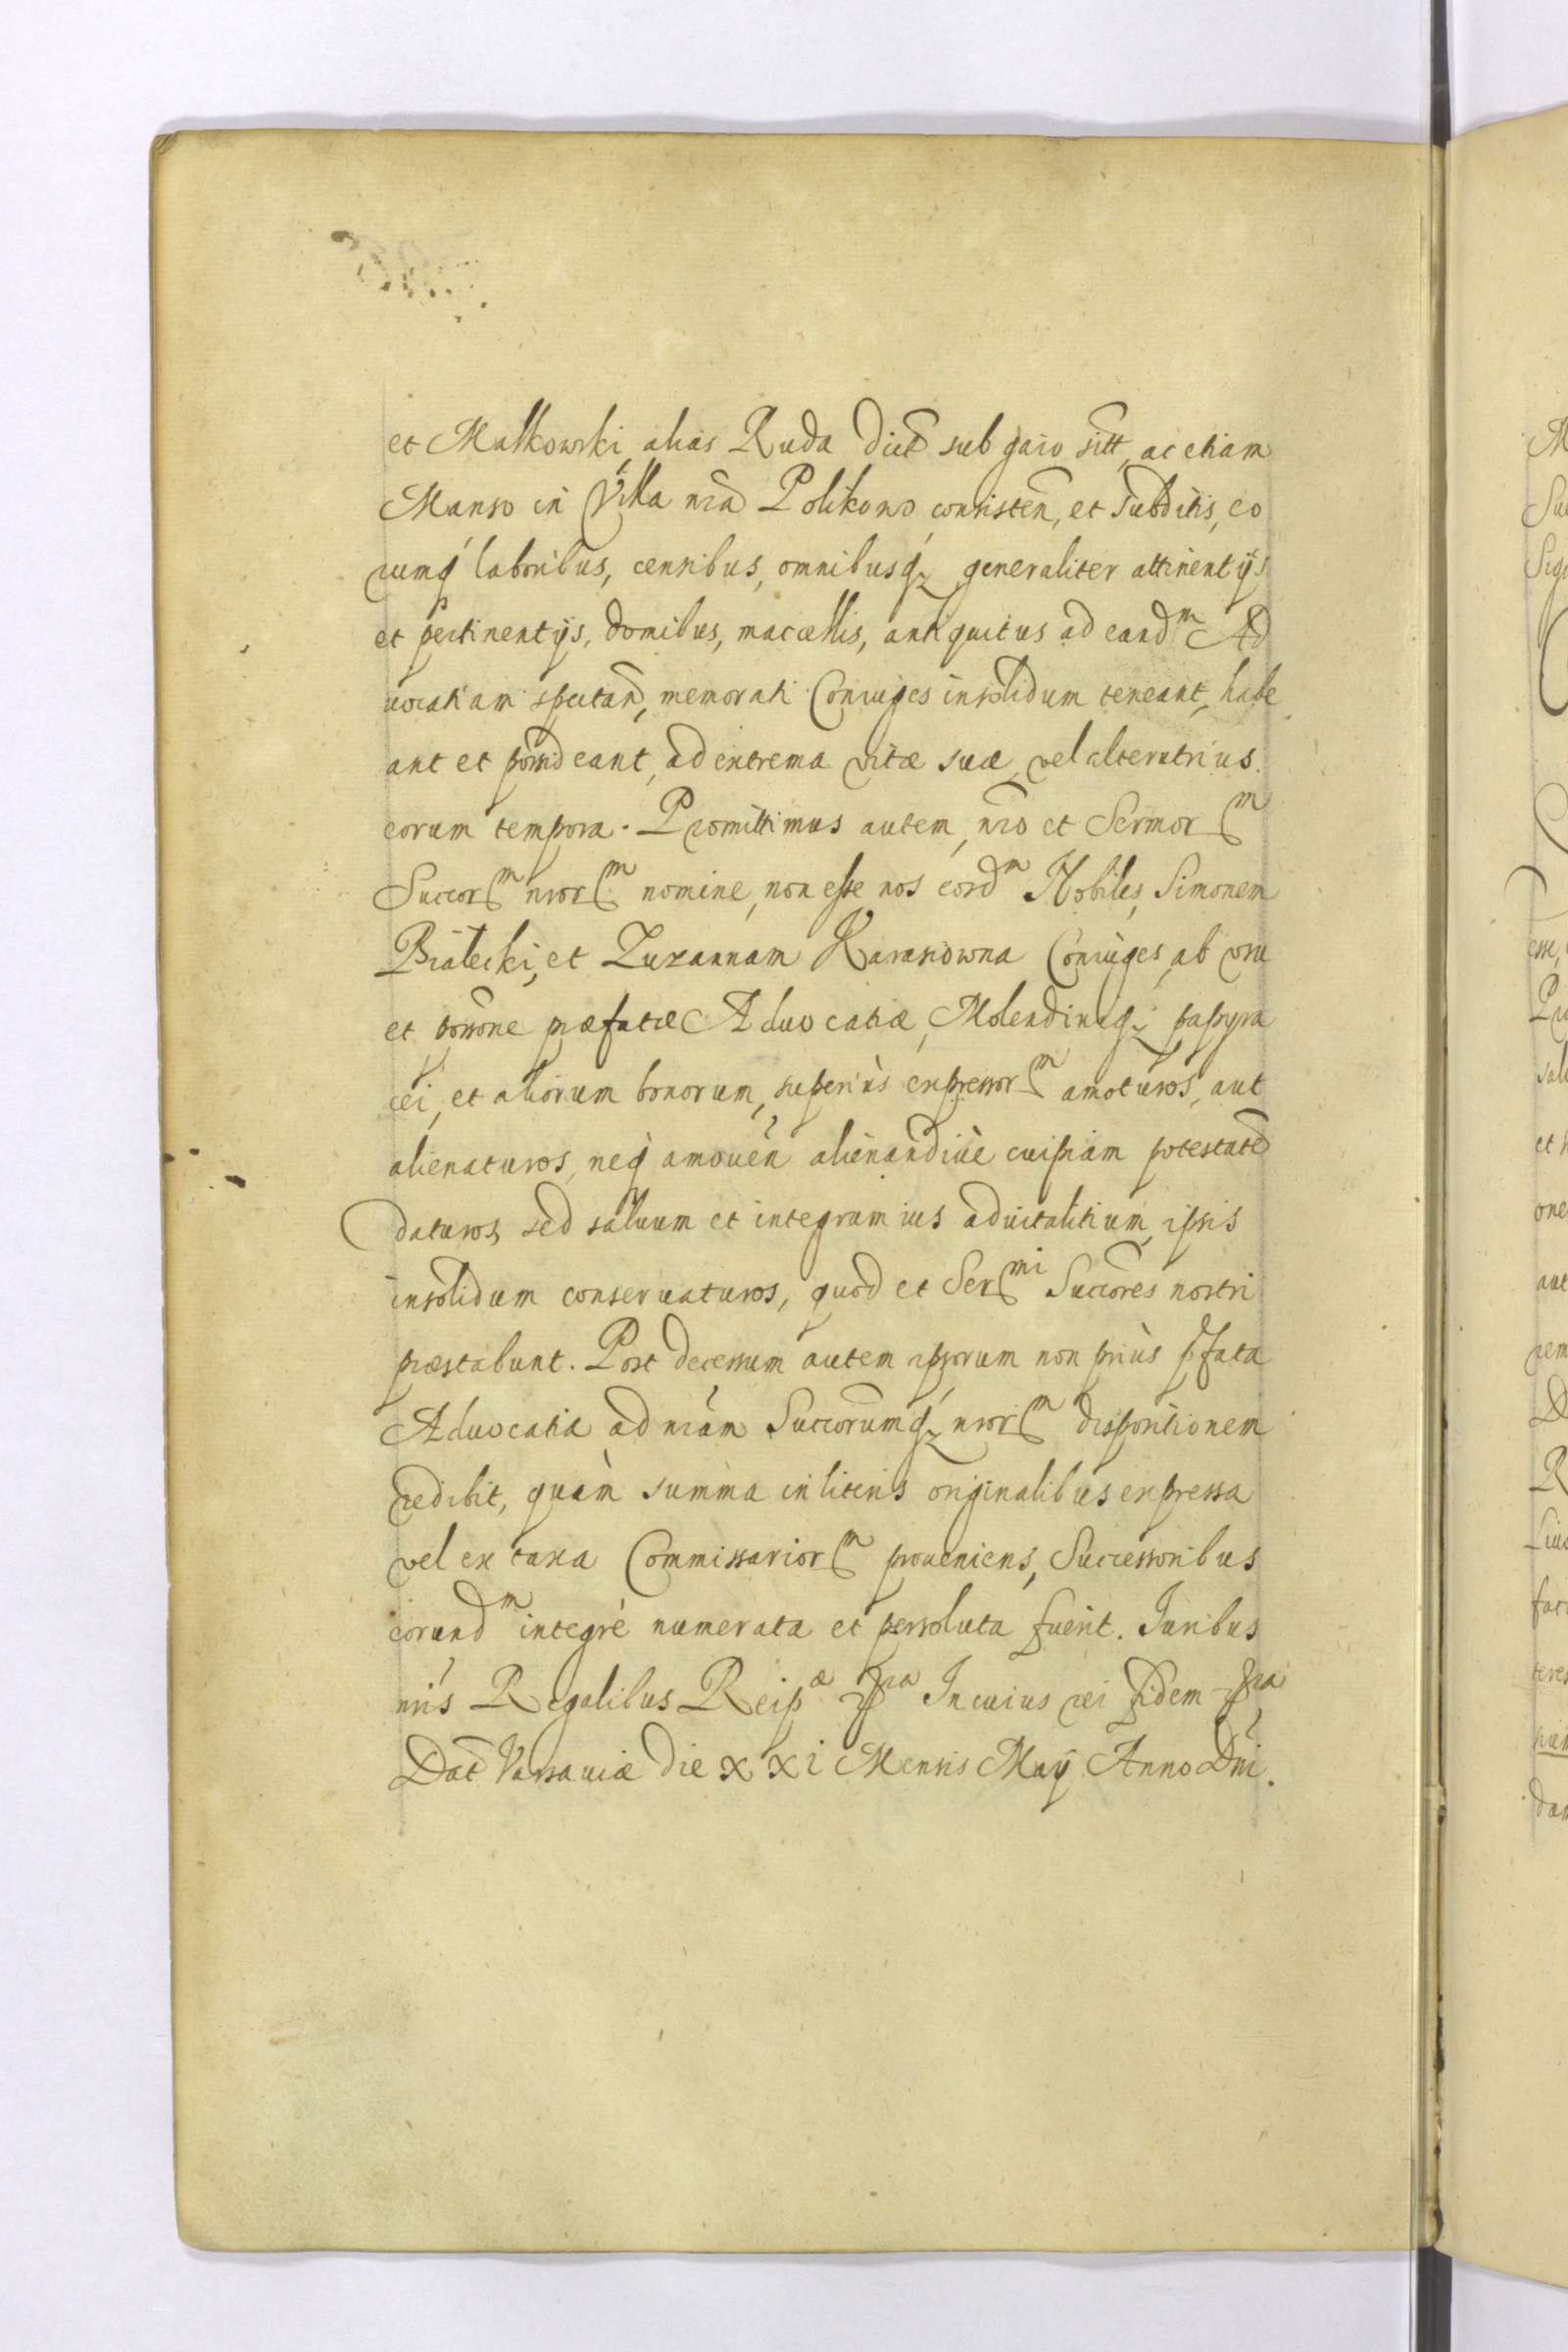 et Malkowski, alias Ruda dict sub gaio sitt, ac etiam
Manso in Villa nra Polikowo consisten, et Subditis, eo
rumq laboribus, censibus, omnibusq generaliter attinentijs
et pertinentijs, domibus, macellis, antiquitus ad eandm Ad
uocatiam spectan, memorati Coniuges insolidum teneant, habe
ant et possideant, ad extrema vitæ suæ, vel alterutrius
eorum tempora. Promittimus autem, nro et Sermorm
Succorm nrorm nomine, non esse nos eosdm Nobiles, Simonem
Białecki, et Zuzannam Karasiowna Coniuges, ab vsu
et possone præfatæ Aduocatiæ, Molendiniq papyra
cei, et aliorum bonorum, superiùs expressorm amoturos, aut
alienaturos, neq amouen alienandiue cuipiam potestate
daturos, sed saluum et integrum ius aduitalitium, ipsis
insolidum conseruaturos, quod et Sermi Succores nostri
præstabunt. Post decessum autem ipsorum non priùs pfata
Aduocatia ad nram Succorumq nrorm dispositionem
redibit, quàm summa in literis originalibus expressa
vel ex taxa Commissariorm proueniens, Successoribus
eorundm integrè numerata et persoluta fuerit. Iuribus
nris Regalibus Reipæ In cuius rei fidem
Dat Varsauiæ die XXI Mensis Maij Anno Dni.